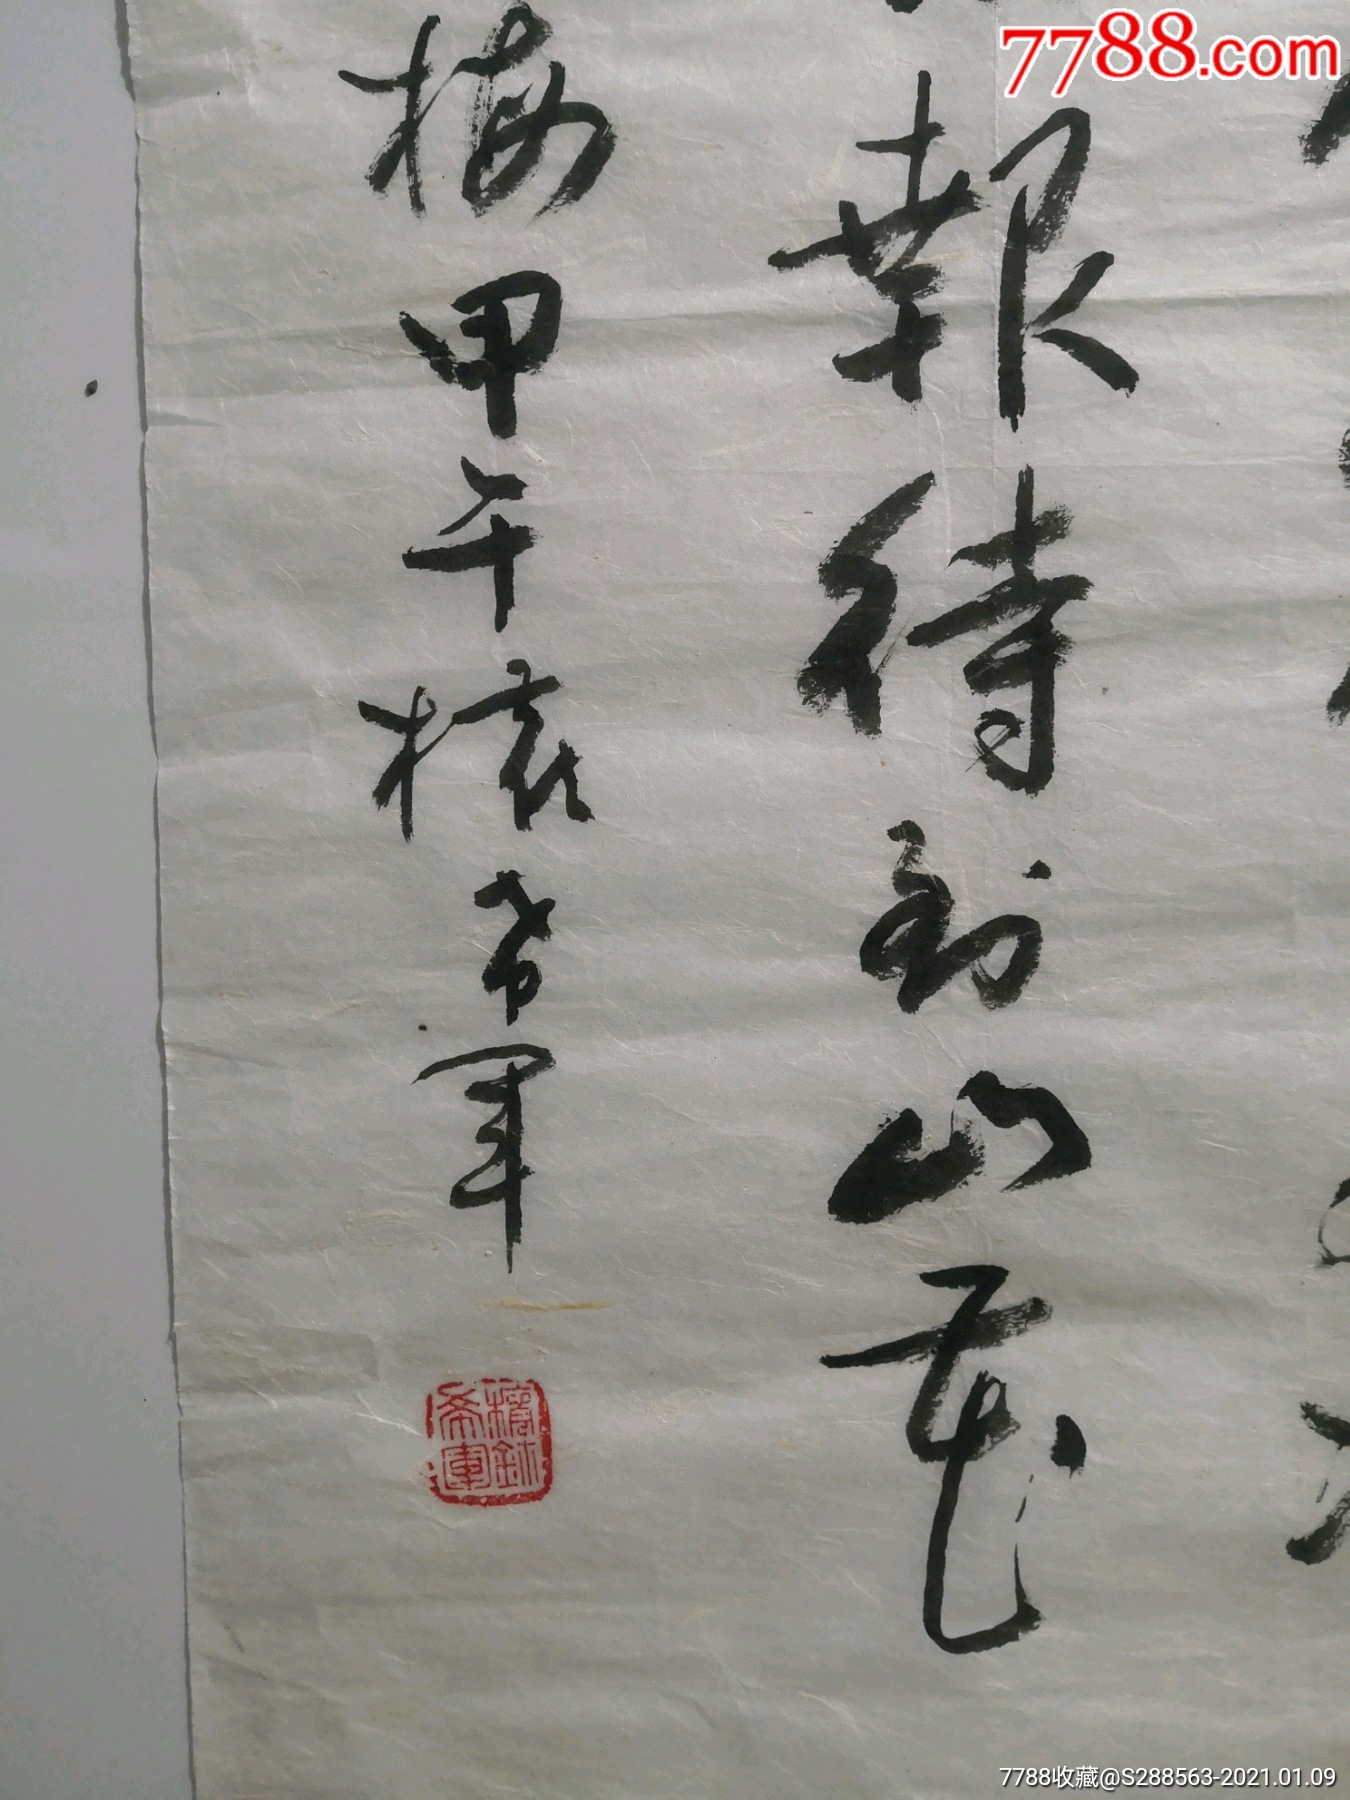 7788.com
報待到山花
梅甲午希军
希軍
7788收藏@S288563-2021.01.09